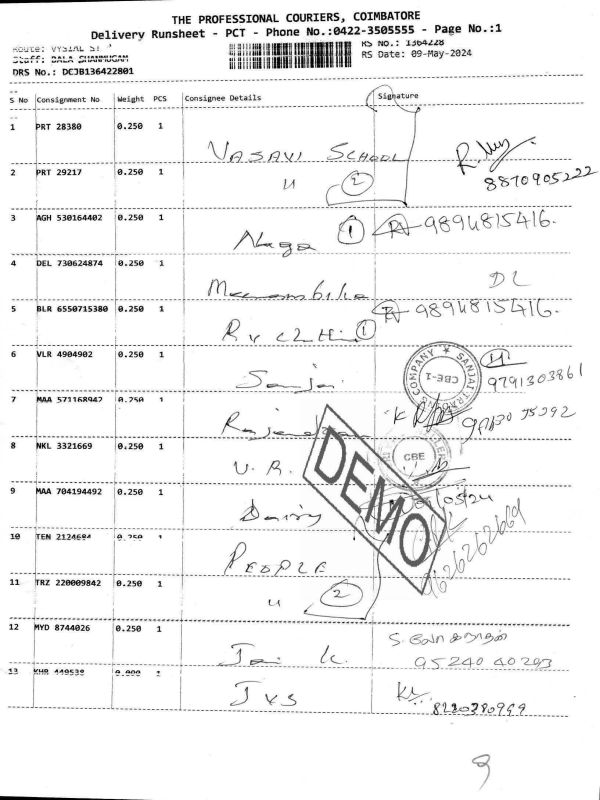 THE PROFESSIONAL COURIERS, COIMBATORE
Delivery Runsheet - PCT - Phone No.:0422-3505555 - Page No.:1
Route: VYSIAL ST
RS No.: 1364228
Staff: BALA SHANMUGAM
RS Date: 09-May-2024
DRS No.: DCJB136422801
S No Consignment No Weight PCS Consignee Details Signature
1 PRT 28380 0.250 1 VASAVI SCHOOL
8870905222
2 PRT 29217 0.250 1 " 2
3 AGH 530164402 0.250 1 Naga 1 9894815416.
4 DEL 730624874 0.250 1 Meenambika DL
5 BLR 6550715380 0.250 1 1 9894815416.
6 VLR 4904902 0.250 1 Sanjai 9791303861
SANJAI CBE-1
7 MAA 571168942 0.250 1
8 NKL 3321669 0.250 1 V. R. CBE
DEMO
9 MAA 704194492 0.250 1
10 TEN 2124684 0.250 1 PEOPLE 9626262669
11 TRZ 220009842 0.250 1 " 2
12 MYD 8744026 0.250 1 Jai K. 95240 40203
13 KHR 449538 0.000 1 JVS